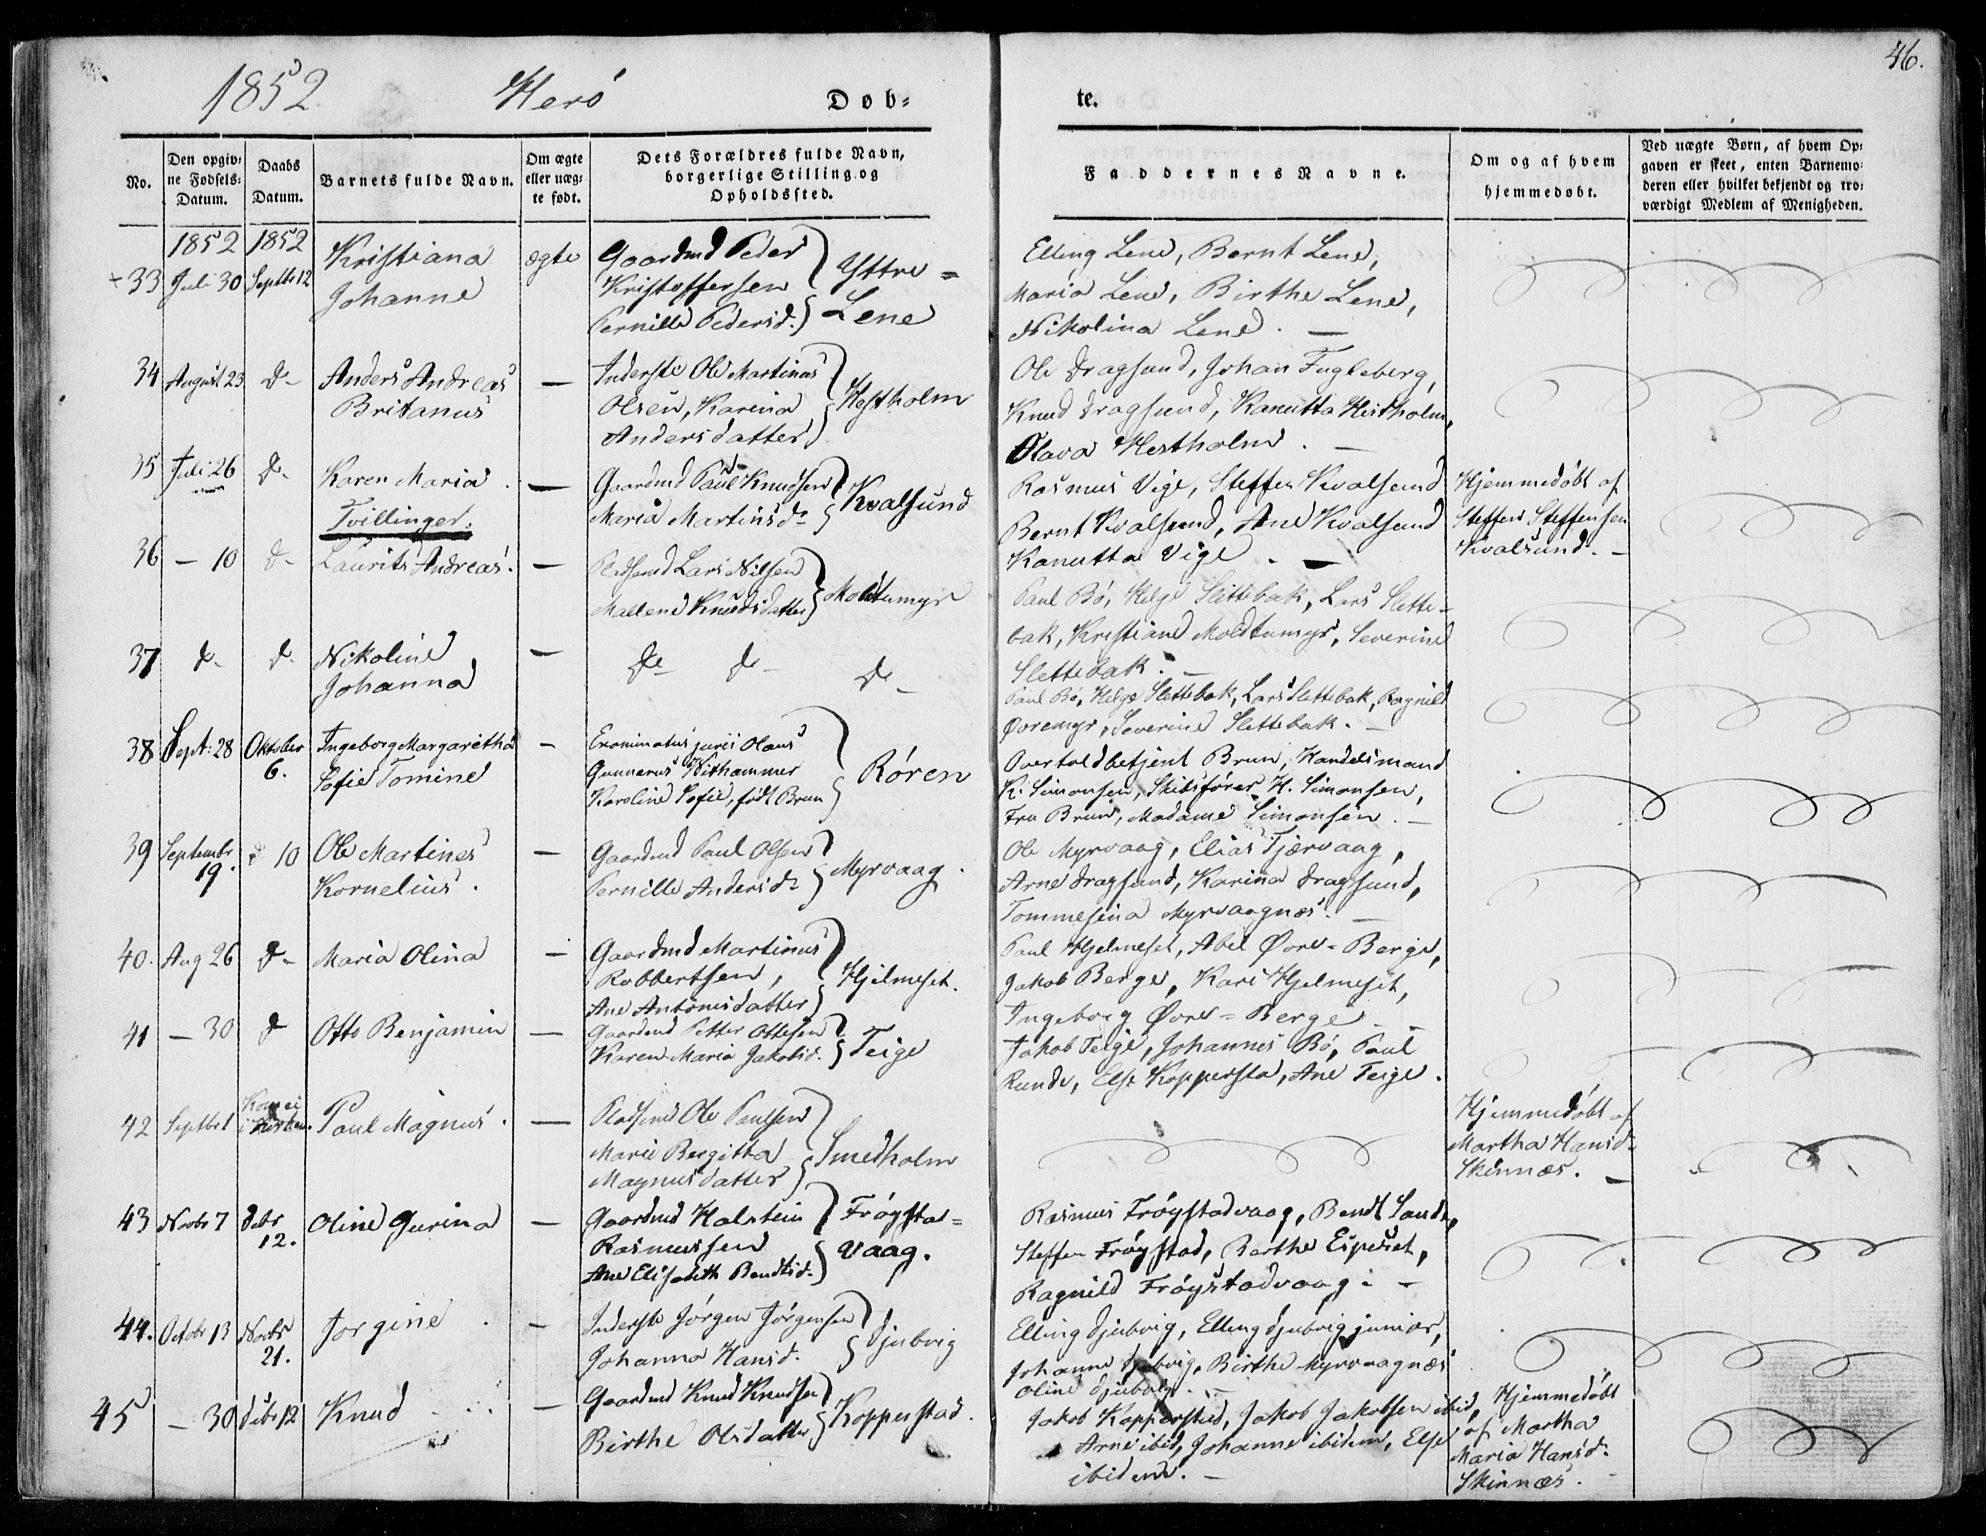 1852
Herö
Dob-
te.
46.
No.
Den opgiv-
ne Fødsels-
Datum.
Daabs
Datum.
Barnets fulde Navn.
Om ægte
eller uæg-
te født.
Dets Forældres fulde Navn,
borgerlige Stilling og
Opholdssted.
Faddernes Navne.
Om og af hvem
hjemmedøbt.
Ved uægte Børn, af hvem Op-
gaven er skeet, enten Barnemo-
deren eller hvilket bekjendt og tro-
værdigt Medlem af Menigheden.
1852 1852
+33 Juli 30 Septbr 12 Kristiana
Johanne
ægte
Gaardmd Peder
Kristoffersen
Pernille Pedersd.
Yttre=
Lene
Elling Lene, Bernt Lene,
Maria Lene, Birthe Lene,
Nikolina Lene. —
34 August 23 d- Anders Andreas
Britanus
—
Inderste Ole Martinus
Olsen, Karina
Andersdatter
Hestholm
Ole Dragsund, Johan Fugleberg,
Knud Dragsund, Kanutta Hestholm,
Olava Hestholm. —
35 Juli 26 d- Karen Maria.
Tvillinger.
—
Gaardmd Paul Knudsen
Maria Martinsd-
Kvalsund
Rasmus Vige, Steffen Kvalsund
Bernt Kvalsund, Ane Kvalsund
Kanutta Vige. —
Hjemmedöbt af
Steffen Steffensen
Kvalsund. —
36 — 10 d- Laurits Andreas. —
Pladsmd Lars Nilsen
Mallene Knudsdatter
Moldtumyr
Paul Bö, Helge Slettebak, Lars Slette-
bak, Kristiane Moldtumyr, Severine
Slettebak. —
37 d- d- Nikoline
Johanna
—
de- de- de-
Paul Bö, Helge Slettebak, Lars Slettebak, Ragnild
Øvremyr, Severine Slettebak. —
38 Sept: 28 Oktober
6.
Ingeborg Margaretha
Sofie Tomine
—
Examinatus jurii Olaus
Gunnerus
Karoline Sofie, födt Brun
Rören
Overtoldbetjent Brun, Handelsmand
K. Simonsen, Skibsförer H. Simonsen,
Fru Brun, Madame Simonsen. —
39 Septembr
19.
d 10 Ole Martines
Kornelius.
—
Gaardmd Paul Olsen
Pernille Andersd-
Myrvaag.
Ole Myrvaag, Elias Tjærvaag,
Arne Dragsund, Karina Dragsund,
Tommesina Myrvaagnæs. —
40. Aug 26 d- Maria Olina —
Gaardmd Martinus
Robbertsen,
Ane Antonisdatter
Hjelmeset.
Paul Hjelmeset, Abel Øvre-Berge,
Jakob Berge, Kari Hjelmeset,
Ingeborg Øvre-Berge. —
41 — 30 d Otto Benjamin —
Gaardmd Petter Ottesen
Karen Maria Jakobsd.
Teige
Jakob Teige, Johannes Bö, Paul
Runde, Else Koppersta, Ane Teige.
42 Septbr 1 Kom ei
i Kirken.
Paul Magnus. —
Pladsmd Ole Paulsen
Marie Bergitta
Magnusdatter
Smedholm
Hjemmedöbt af
Martha Hansd-
Skinnæs. —
43 Novbr 7 Debr
12.
Oline Gurina —
Gaardmd Halstein
Rasmussen
Ane Elisabeth Bendtsd-
Fröysta=
vaag.
Rasmus Fröystadvaag, Bendt Sande,
Steffen Fröystad, Berthe Espeset,
Ragnild Fröystadvaag. —
44. Octobr 13 Novbr
21.
Jorgine. —
Inderste Jörgen Jörgensen
Johanna Hansd.
Djubvig
Elling Djubvig, Elling Djubvig junior,
Johanne Djubvig, Birthe Myrvaagnæs
Oline Djubvig. —
45 — 30 Debr 12 Knud —
Gaardmd Knud Knudsen
Birthe Olsdatter
Kopperstad.
Jakob Kopperstad, Jakob Jakobsen ibid,
Arne ibid, Johanne ibidem, Else
ibidem. —
Hjemmedöbt
af Martha
Maria Hansd-
Skinnæs.